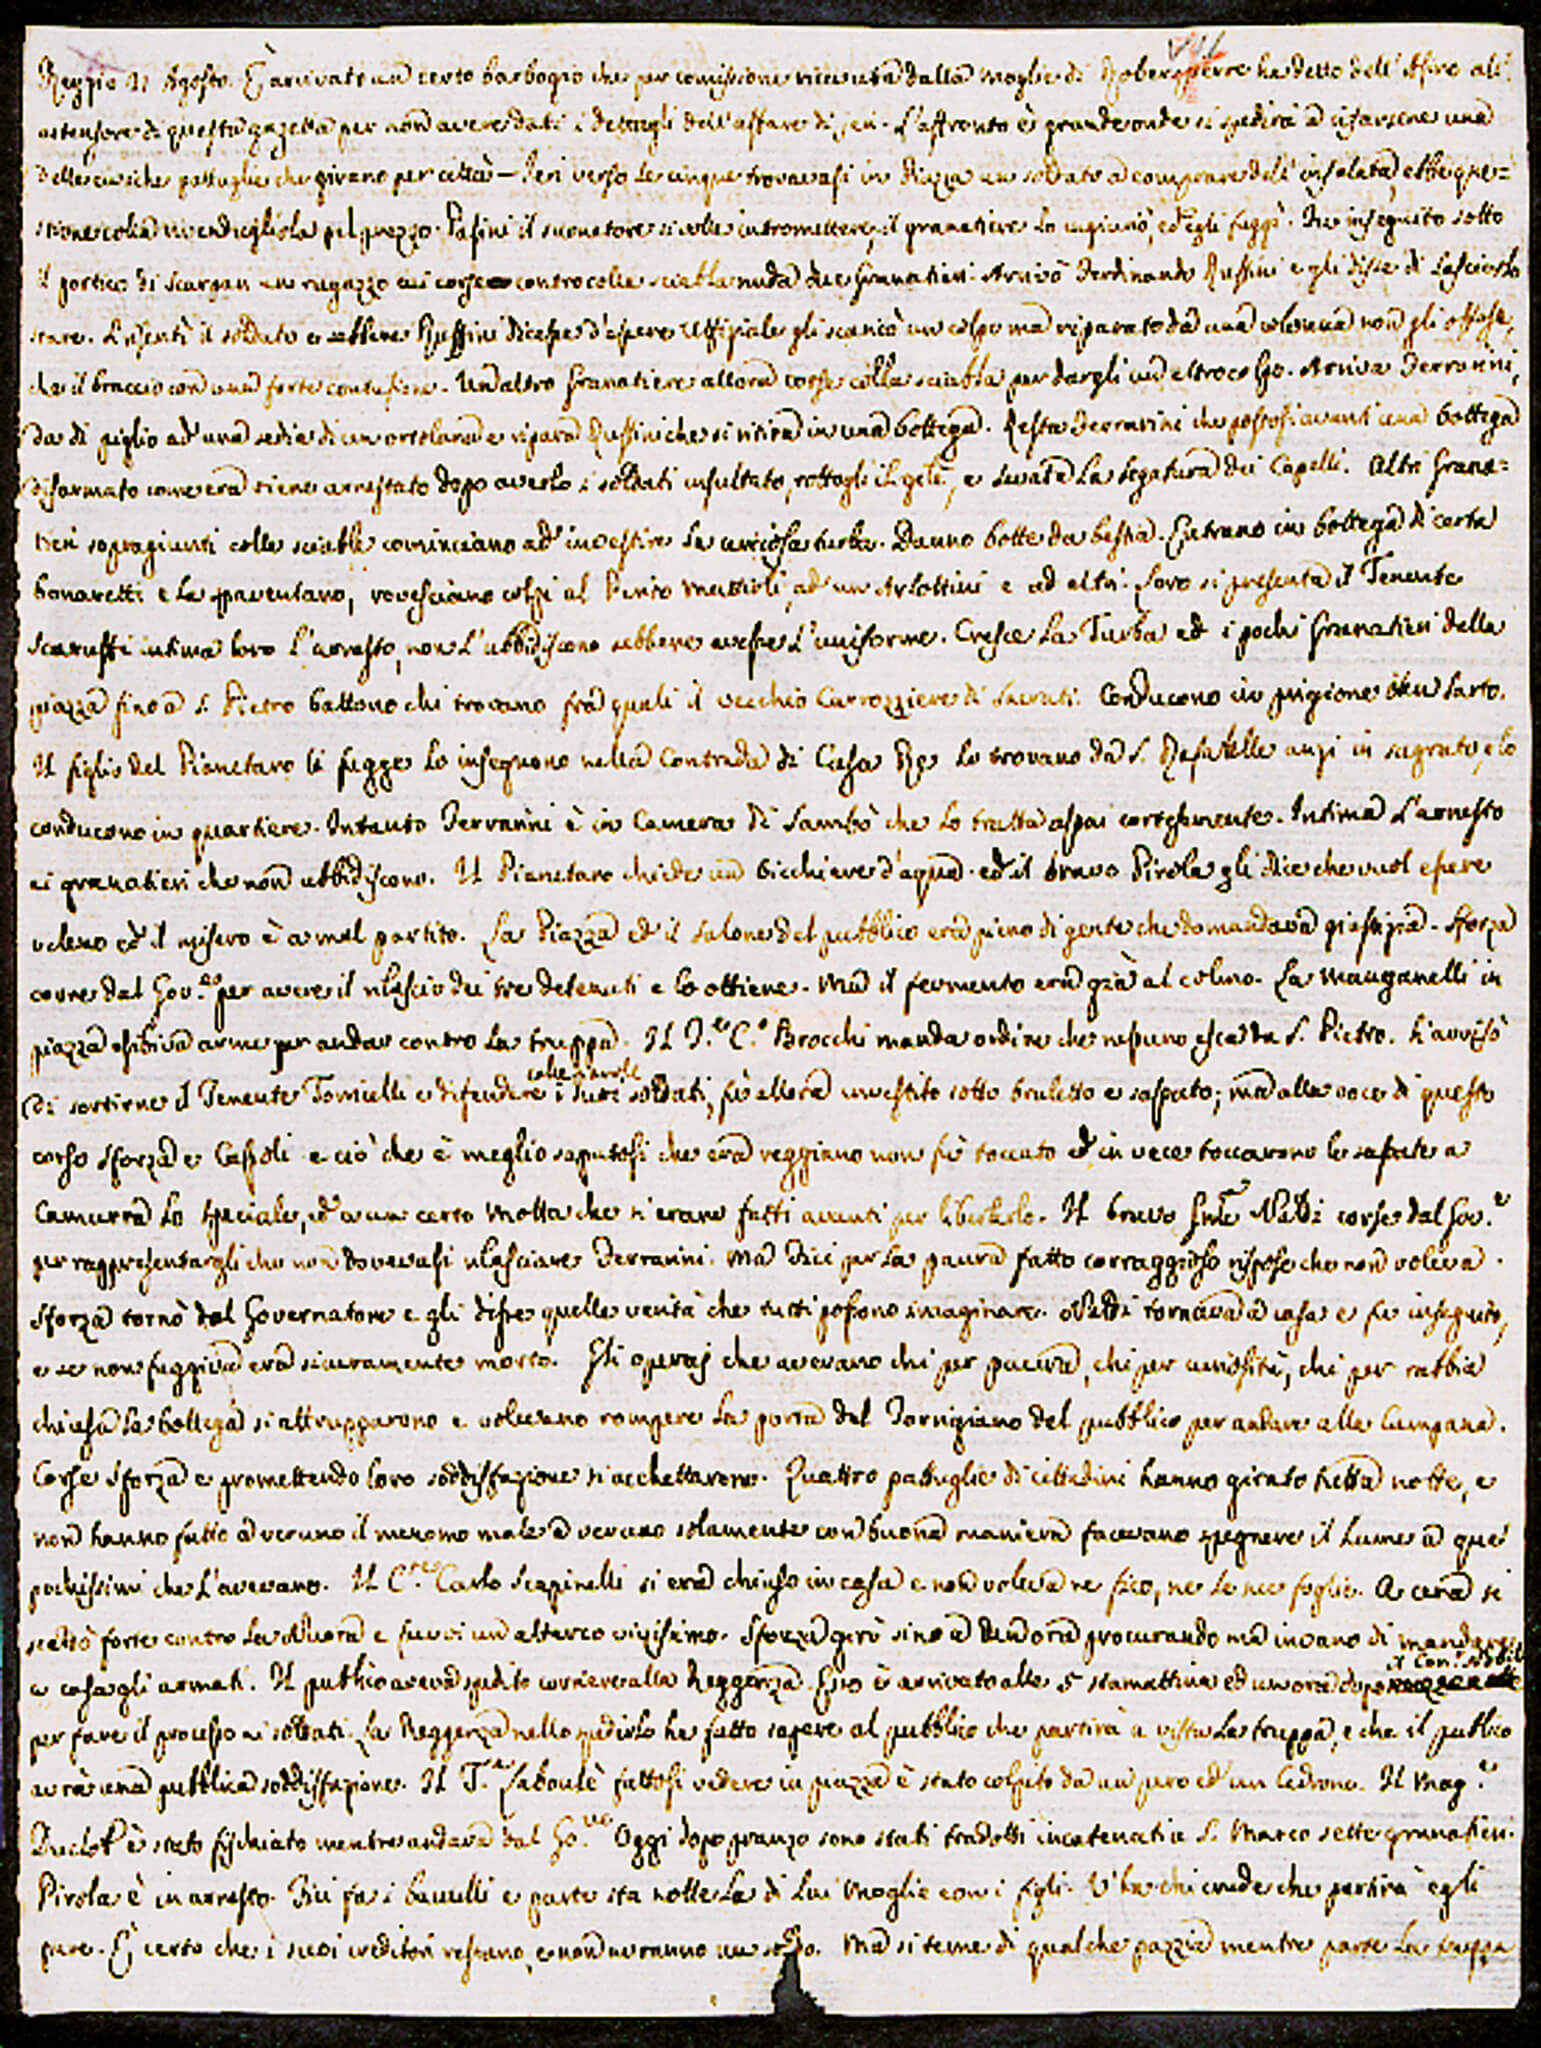 Reggio 21 Agosto. È arrivato un certo barbogio che per comissione ricevuta dalla Moglie di Roberspierre ha detto dell'Asino all'
estensore di questa gazetta per non avere dati i dettagli dell'affare di jeri. L'affronto è grande onde si spedirà a risarsene una
delle civiche pattuglie che girano per città — Jeri verso le cinque trovavasi in Piazza un soldato a comprare dell'insalata, ebbe que=
stione colla rivendugliola pel prezzo. Pasini il suonatore si volle intromettere, il granatiere lo ingiuriò, ed egli fuggì. Fu inseguito sotto
il portico di Scargan un ragazzo cui corse contro colla sciabla nuda due Granatieri. Arrivò Ferdinando Ruffini e gli disse di lasciarlo
stare. Risentì il soldato e sebbene Ruffini dicesse d'essere Uffiziale gli scaricò un colpo ma riparato da una colonna non gli offese,
che il braccio con una forte contusione. Un altro Granatiere allora corse colla sciabla per dargli un altro colpo. Arriva Ferrarini,
da di piglio ad una sedia di un ortolana e ripara Ruffini che si ritira in una bottega. Resta Ferrarini che postosi avanti una bottega
disarmato come era viene arrestato dopo averlo i soldati insultato, rottogli il gilè, e levata la legatura dei Capelli. Altri Grana=
tieri sopragiunti colle sciable cominciano ad investire la curiosa turba. Danno botte da bestia. Entrano in bottega di certa
Bonaretti e la spaventano, rovesciano colpi al Perito Mattioli, ad un Arlottini e ad altri. Loro si presenta il Tenente
Scaruffi intima loro l'arresto, non l'ubbidiscono sebbene avesse l'uniforme. Cresce la Turba ed i pochi Granatieri dalla
piazza fino a S. Pietro battono chi trovano frà quali il vecchio Carrozziere di Sacrati. Conducono in prigione un Sarto.
Il figlio del Pianetaro li fugge lo inseguono nella Contrada di Casa Re lo trovano da S. Rafaelle anzi in sagrato, e lo
conducono in quartiere. Intanto Ferrarini è in Camera di Sambò che lo tratta assai cortesemente. Intima l'arresto
ai granatieri che non ubbidiscono. Il Pianetaro chiede un bicchiere d'aqua ed il bravo Pirola gli dice che vuol essere
veleno ed il misero è a mal partito. La Piazza ed il salone del pubblico era pieno di gente che domandava giustizia. Sforza
corre dal Gov.re per avere il rilascio dei tre detenuti e lo ottiene. Ma il fermento era già al colmo. La Manganelli in
piazza esibiva arme per andar contro la truppa. Il T.e C.o Brocchi manda ordine che nessuno esca da S. Pietro. S'avvisò
di sortirne il Tenente Torricelli e difendere colle parole i suoi soldati, fù allora investito sotto broletto e sassato; ma alla voce di questo
corse Sforza e Cassoli e ciò che è meglio saputosi che era reggiano non fù toccato ed in vece toccarono le sassate a
Camurra lo speciale, ed a un certo Motta che si erano fatti avanti per liberarlo. Il bravo Gnle Naldi corse dal Gov.e
per rappresentargli che non dovevasi rilasciare Ferrarini. Ma Dici per la paura fatto corraggioso rispose che non voleva.
Sforza tornò dal Governatore e gli disse quelle verità che tutti possono imaginare. Naldi tornava a casa e fu inseguito,
e se non fuggiva era sicuramente morto. Gli operaj che avevano chi per paura, chi per curiosità, chi per rabbia
chiusa la bottega si attrupparono e volevano rompere la porta del Torrigiano del pubblico per andare alla Campana.
Corse Sforza e promettendo loro soddisfazione si acchettarono. Quattro pattuglie di cittadini hanno girato tutta notte, e
non hanno fatto a veruno il menomo male a veruno solamente con buona maniera facevano spegnere il lume a quei
pochissimi che l'avevano. Il C.te Carlo Scapinelli si era chiuso in casa e non voleva ne fico, ne le sue foglie. A cena si
scaldò forte contro la Nuora e fuvvi un alterco vivissimo. Sforza girò sino a un'ora procurando ma invano di mandare
a casa gli armati. Il publico aveva spedito corriere alla Reggenza. Esso è arrivato alle 5 stamattina ed un ora dopo il Con.
per fare il processo ai soldati. La Reggenza nello spedirlo ha fatto sapere al pubblico che partirà a vista la truppa, e che il publico
avrà una pubblica soddisfazione. Il T.e Laboulè fattosi vedere in piazza è stato colpito da un pero ed un Cedrone. Il Mag.e
Duclot è stato fischiato mentre andava dal Go.re Oggi dopo pranzo sono stati tradotti incatenati a S. Marco sette granatieri.
Pirola è in arresto. Dici fa i baulli e parte sta notte la di lui Moglie con i figli. V'ha chi crede che partirà egli
pure. È certo che i suoi creditori restano, e non avranno un soldo. Ma si teme di qualche pazzia mentre parte la truppa